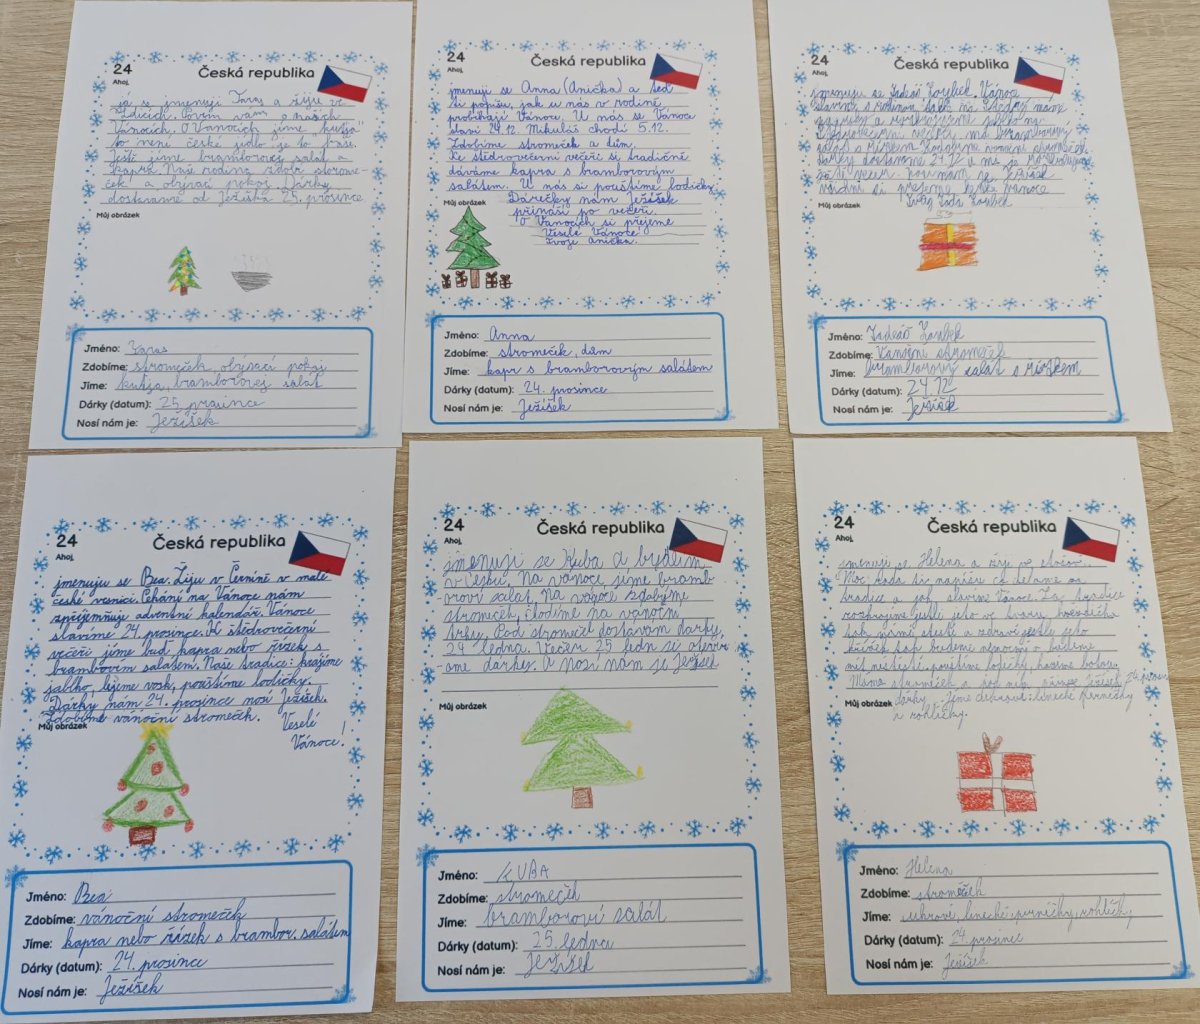 24
Česká republika
Ahoj,
já se jmenuji Taras a žiju ve
Zdicích. Povím vám o našich
Vánocích. O Vánocích jíme "kutja"
to není české jídlo je to kaše.
Ještě jíme bramborovej salát a
kapra. Naše rodina zdobí stromeček
a obývací pokoj. Dárky
dostaneme od Ježíška 25. prosince
Můj obrázek
Jméno: Taras
Zdobíme: stromeček, obývací pokoj
Jíme: kutja, bramborovej salát
Dárky (datum): 25 prosince
Nosí nám je: Ježíšek
24
Česká republika
Ahoj,
jmenuji se Anna (Anička) a teď
ti popíšu, jak u nás v rodině
probíhají Vánoce. U nás se Vánoce
slaví 24.12. Mikuláš chodí 5.12.
Zdobíme stromeček a dům.
Ke štědrovečerní večeři si tradičně
dáváme kapra s bramborovým
salátem. U nás si pouštíme lodičky.
Dárečky nám Ježíšek
přináší po večeři.
O Vánocích si přejeme
Veselé Vánoce
Tvoje Anička.
Můj obrázek
Jméno: Anna
Zdobíme: stromeček, dům
Jíme: kapr s bramborovým salátem
Dárky (datum): 24. prosince
Nosí nám je: Ježíšek
24
Česká republika
Ahoj,
jmenuji se Tadeáš
Vánoce
slavíme s rodinou
salát s řízkem
dárky dostaneme 24.12
Ježíšek
Můj obrázek
Jméno: Tadeáš
Zdobíme: Vánoční stromeček
Jíme: bramborový salát s řízkem
Dárky (datum): 24.12
Nosí nám je: Ježíšek
24
Česká republika
Ahoj,
jmenuju se Bea. Žiju v Černíně v malé
české vesnici. Čekání na Vánoce nám
zpříjemňuje adventní kalendář. Vánoce
slavíme 24. prosince. Ke štědrovečerní
večeři jíme buď kapra nebo řízek s
bramborovím salátem. Naše tradice: krájíme
jablko, lijeme vosk, pouštíme lodičky.
Dárky nám 24. prosince nosí Ježíšek.
Zdobíme vánoční stromeček. Veselé
Vánoce!
Můj obrázek
Jméno: Bea
Zdobíme: vánoční stromeček
Jíme: kapra nebo řízek s brambor. salátem
Dárky (datum): 24. prosince
Nosí nám je: Ježíšek
24
Česká republika
Ahoj,
jmenuji se Kuba a bydlím
v Česku. Na vánoce jíme bramboroví
salát. Na vánoce zdobýme
stromeček, chodíme na vánoční
trhy. Pod stromeček dostávám dárky,
24 ledna. Večer 25 ledn se
dárky. A nosí nám je Ježíšek
Můj obrázek
Jméno: KUBA
Zdobíme: stromeček
Jíme: bramboroví salát
Dárky (datum): 25. ledna
Nosí nám je: Ježíšek
24
Česká republika
Ahoj,
jmenuji se Helena a žiji v
Moc ráda ti napíšu co děláme za
tradice a jak slavíme Vánoce. Za tradice
rozkrojíme jablko
pouštíme lodičky, házíme botou.
Máme stromeček a pod něj Ježíšek 24. prosin
dárky. Jíme cukroví: linecké perníčky
a rohlíčky.
Můj obrázek
Jméno: Helena
Zdobíme: stromeček
Jíme: cukroví, linecké, perníčky, rohlíčky
Dárky (datum): 24. prosinec
Nosí nám je: Ježíšek